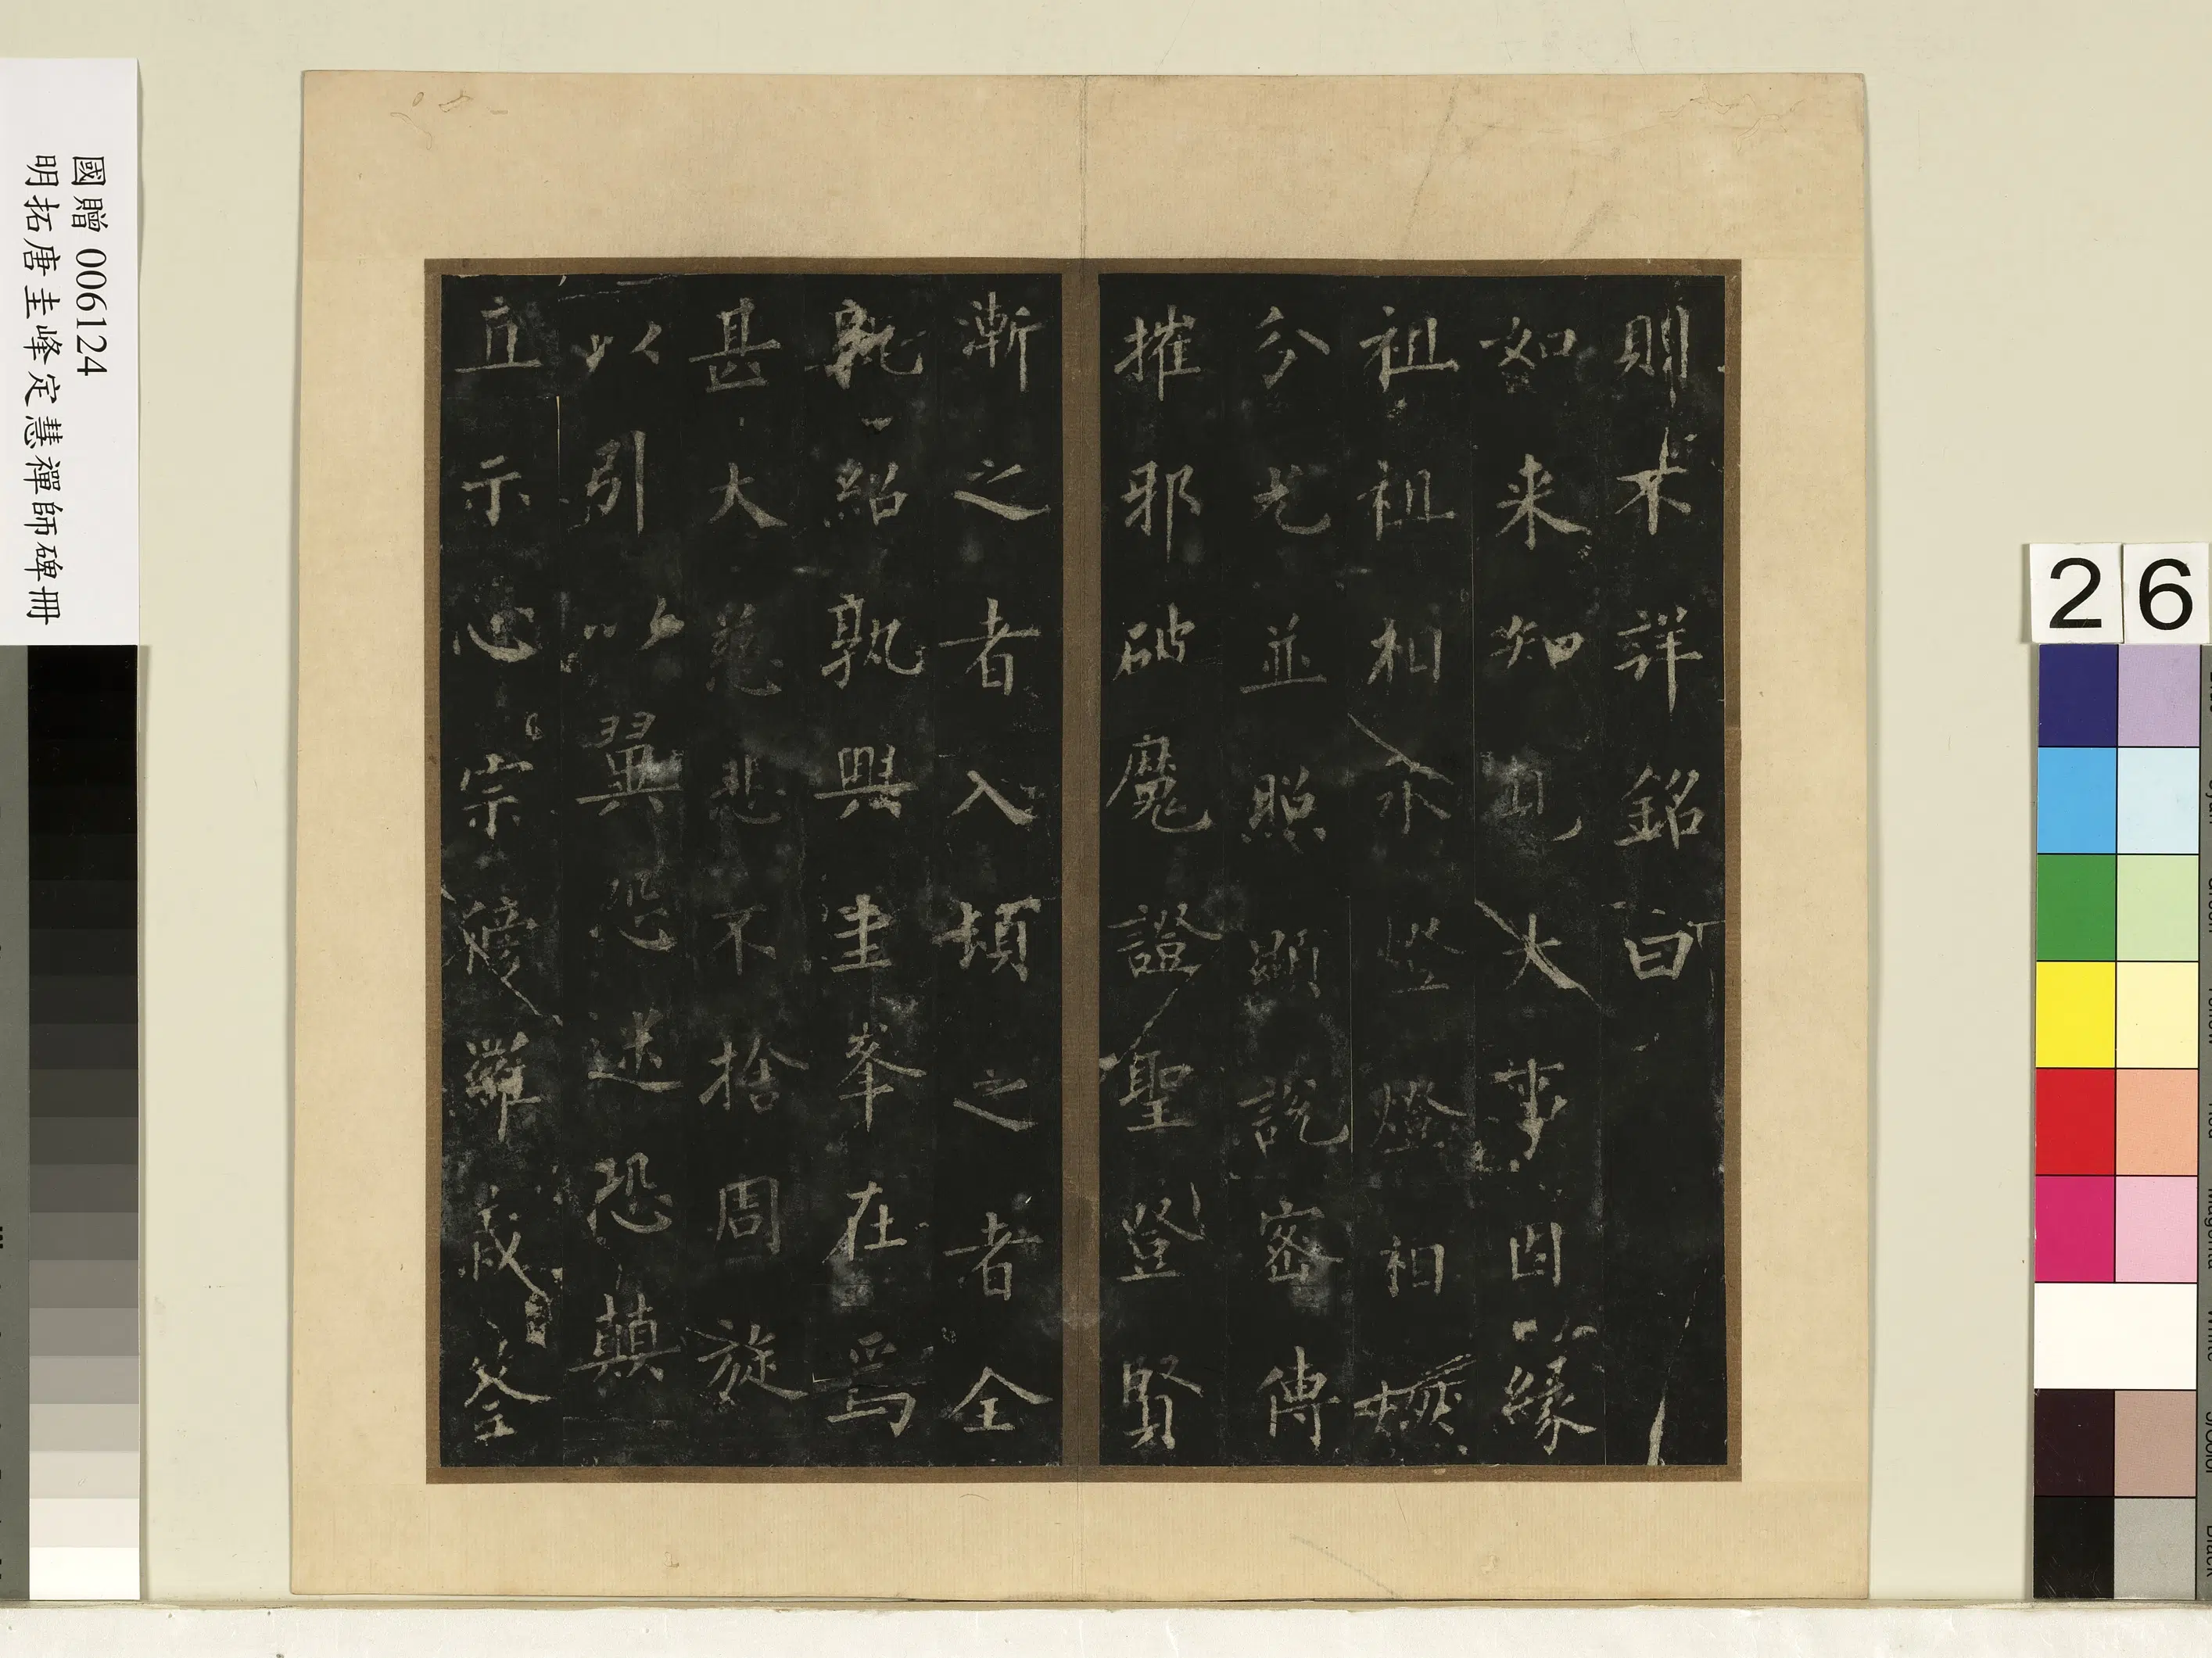 則不詳銘曰
如来知見大事因緣
祖祖相承燈燈相燃
分光並照顯說密傳
摧邪破魔證聖登賢
漸之者入頓之者全
孰紹孰興圭峯在焉
甚大慈悲不捨周旋
以引以翼恐迷恐顛
直示心宗傍羅義筌
國贈 006124
明拓唐圭峰定慧禪師碑冊
26